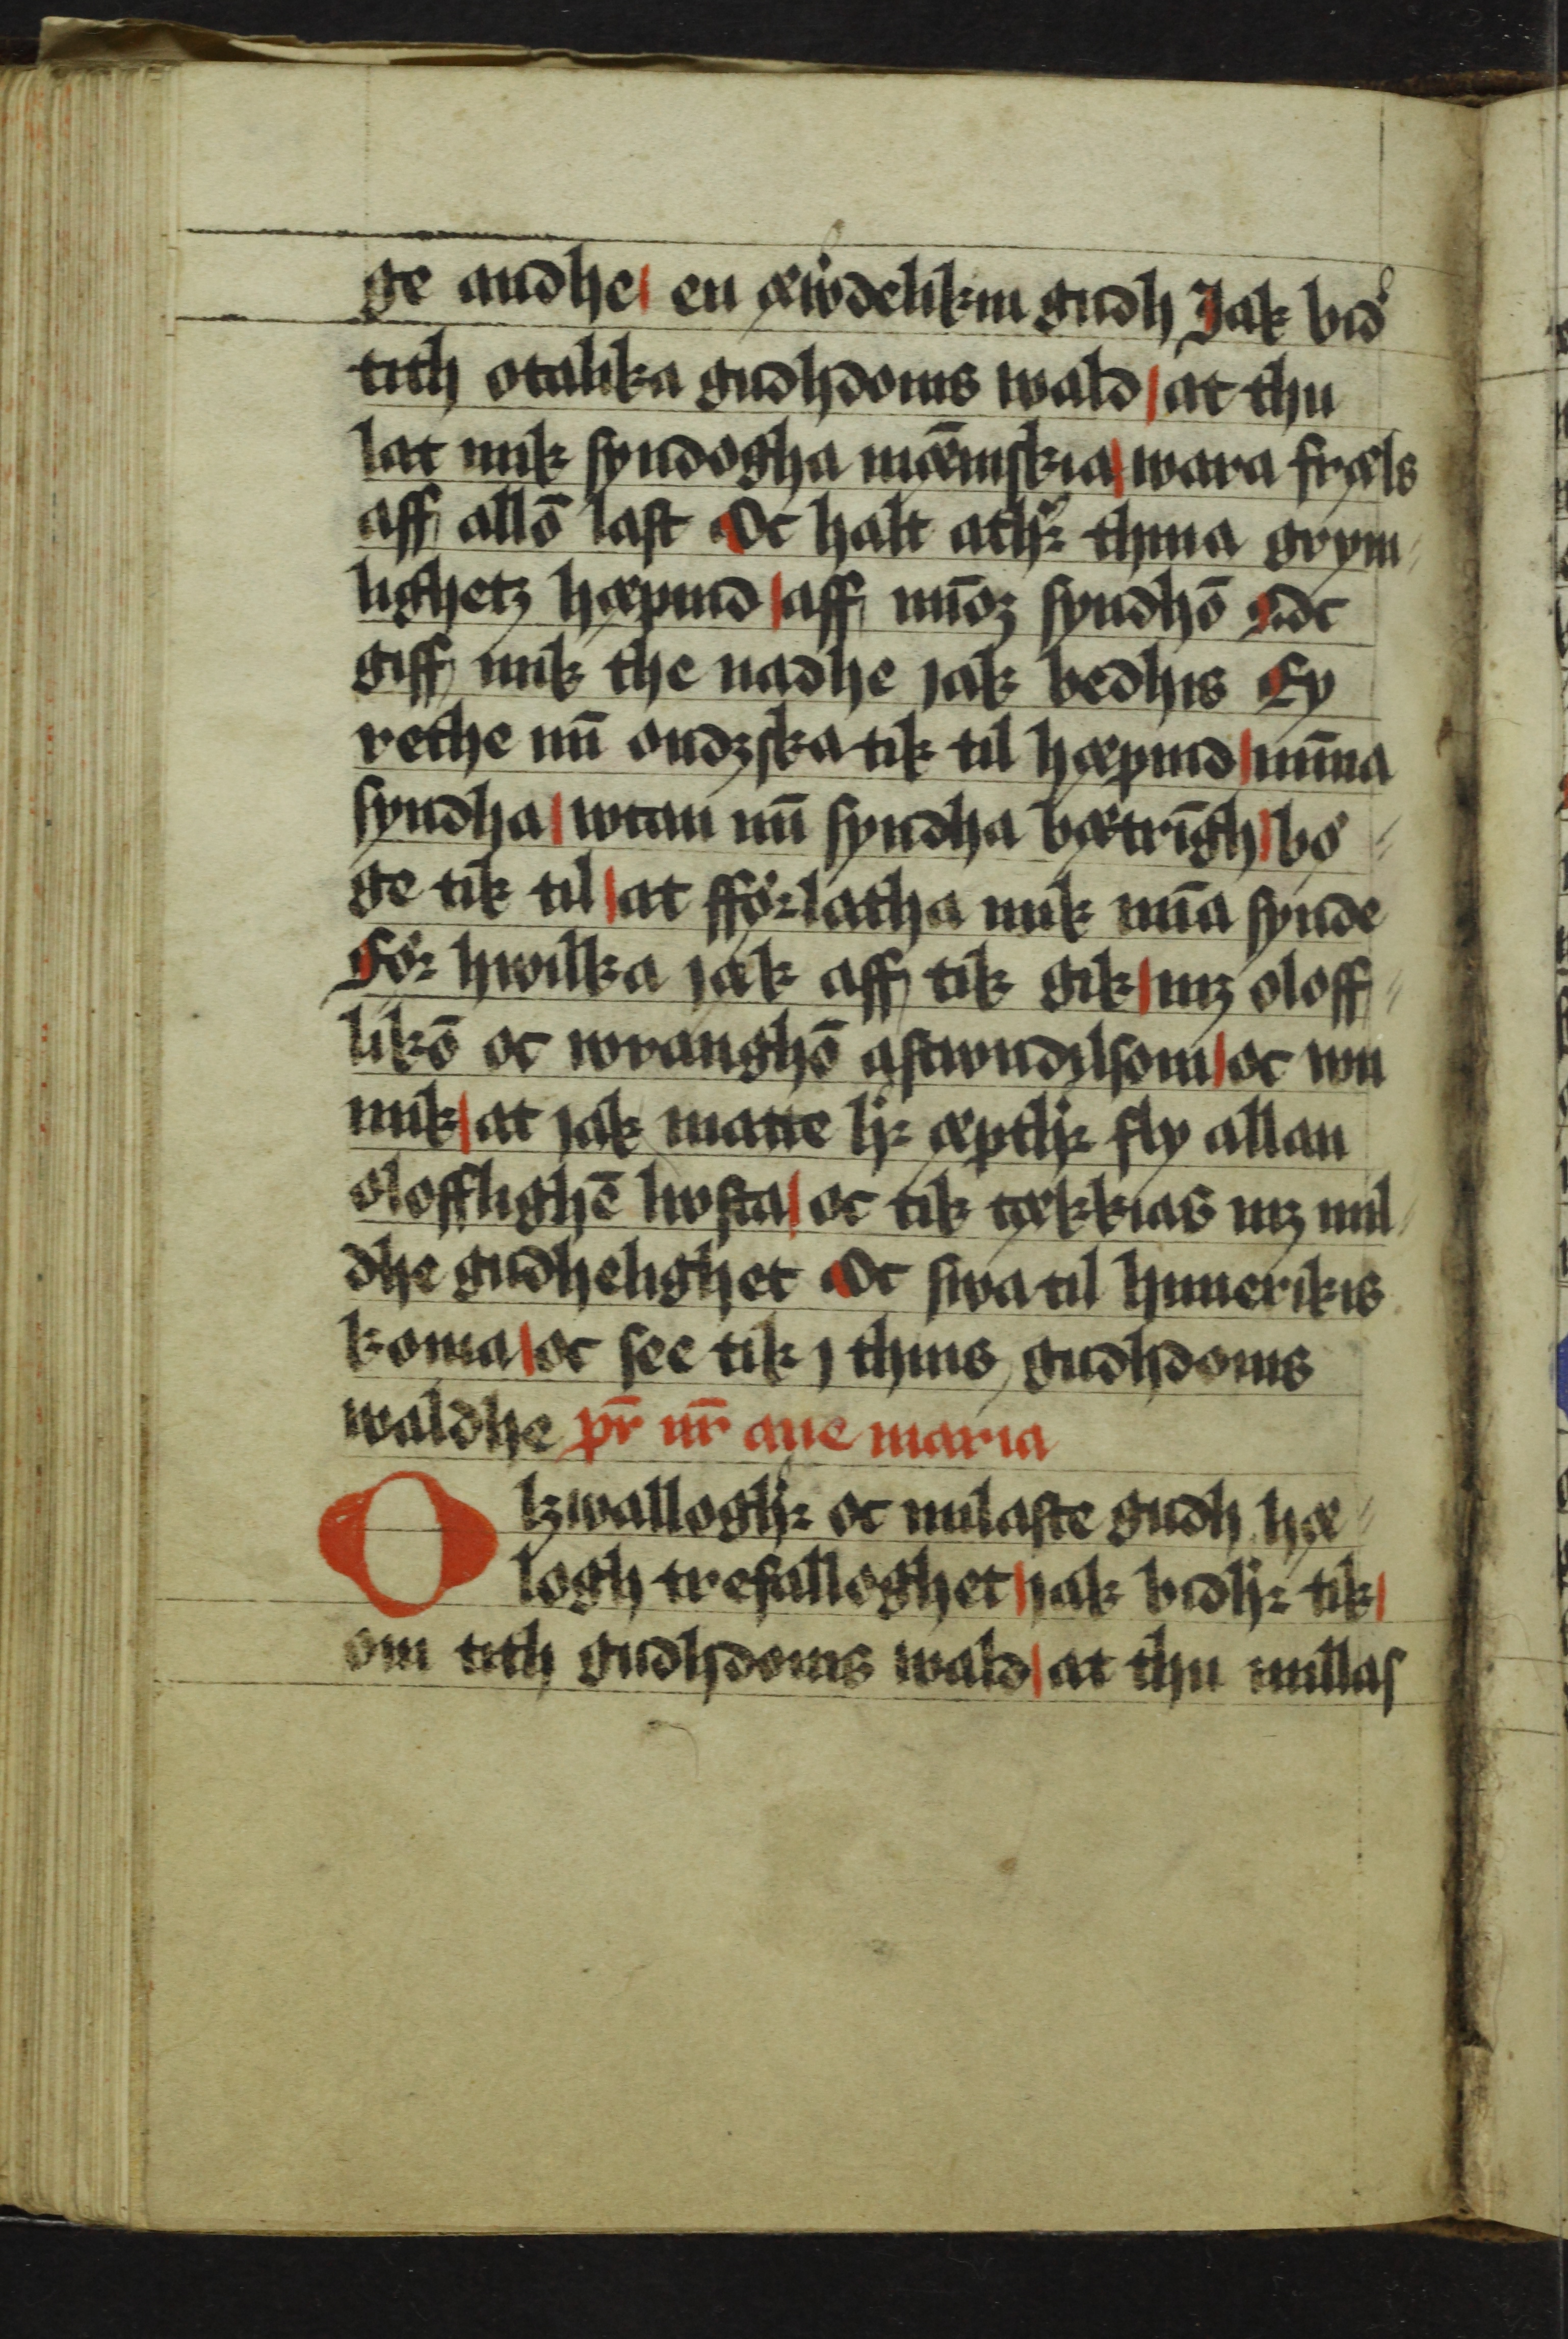 ge andhe en æwͤdelikin gudh Jak bidͤ
tith otalika gudhdoms wald at thu
lat mik syndogha mæ̅niskia wara fræls
aff allō last Oc halt athͤꝛ thina grym
lighetz hæpnd aff mīoꝫ syndhō Oc
giff mik the nadhe jak bedhis Ey
rethe mī ondzska tik til hæpnd mīna
syndha wtan mī syndha bætrīgh bø
ge tik til at fførlatha mik mīa synde
før hwilka jak aff tik gik mꝫ oloff
likō oc wranghō astwndilsom oc wn
mik at jak matte hͤꝛ æpthͤꝛ fly allan
olofflighē lwsta oc tik tækkias mꝫ mil
dhe gudhelighet Oc swa til himerikis
koma oc see tik j thins gudhdoms
waldhe pr̄ nr̄ aue maria
O lzwalloghͤꝛ oc milaste gudh hæ
logh trefalloghet jak bidhͤꝛ tik
om tith gudhdoms wald at thu millas